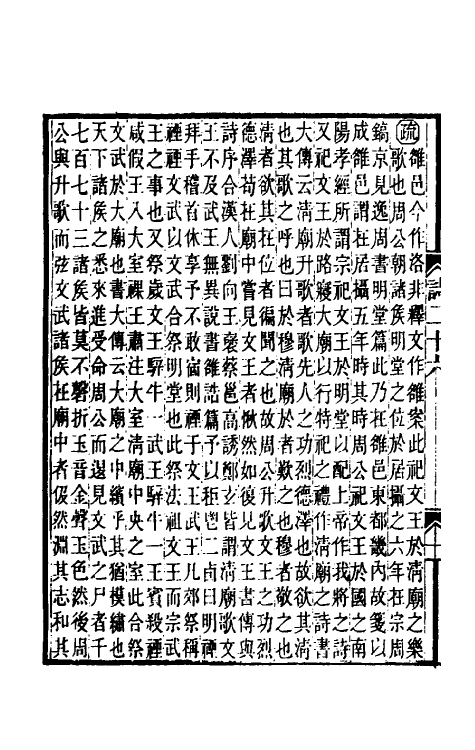 疏雒邑今作洛非釋文作雒案此祀文王於淸廟之樂
歌也周公朝諸矦明堂之位於居攝之六年在宗周
鎬京見逸周書明堂篇此乃在雒邑東都畿內故箋以
成雒邑謂在居攝五年時其時周公祀文王於國之南
陽孝經所謂宗祀文王於明堂以配上帝作我將之詩
又祀文王於路寢大廟以行特祀之禮作淸廟之詩書
大傳云淸廟升歌者歌先人之功烈德澤也故欲其淸
也其歌之呼也曰於穆淸廟於者歎之也穆者敬之也
淸者欲其在位者徧聞之也故周公升歌文王之功烈
德澤苟在廟中嘗見文王者愀然如復見文王書傳與
詩序合漢人劉向王襃蔡邕高誘鄭玄皆謂淸廟歌文
王不及武王無異說書雒誥篇予以秬鬯二卣曰明禋
拜手稽首休享予不敢宿則禋于文王武王凡郊祭稱
禋于文武以文武合祭明堂也此祭法祖文王而宗武
王之事也又祭歲文王騂牛一武王騂牛一王賓殺禋
咸假王入大室祼王肅注大室淸廟中央之室此合祭
文武於大廟也書大傳云大廟之中繽乎其猶模繡也
天下諸矦之悉來進受命周公而還見文武之尸者千
七百七十三諸矦皆莫不磬折玉音金聲玉色然後周
公與升歌而弦文武諸矦在廟中者伋然淵其志和其